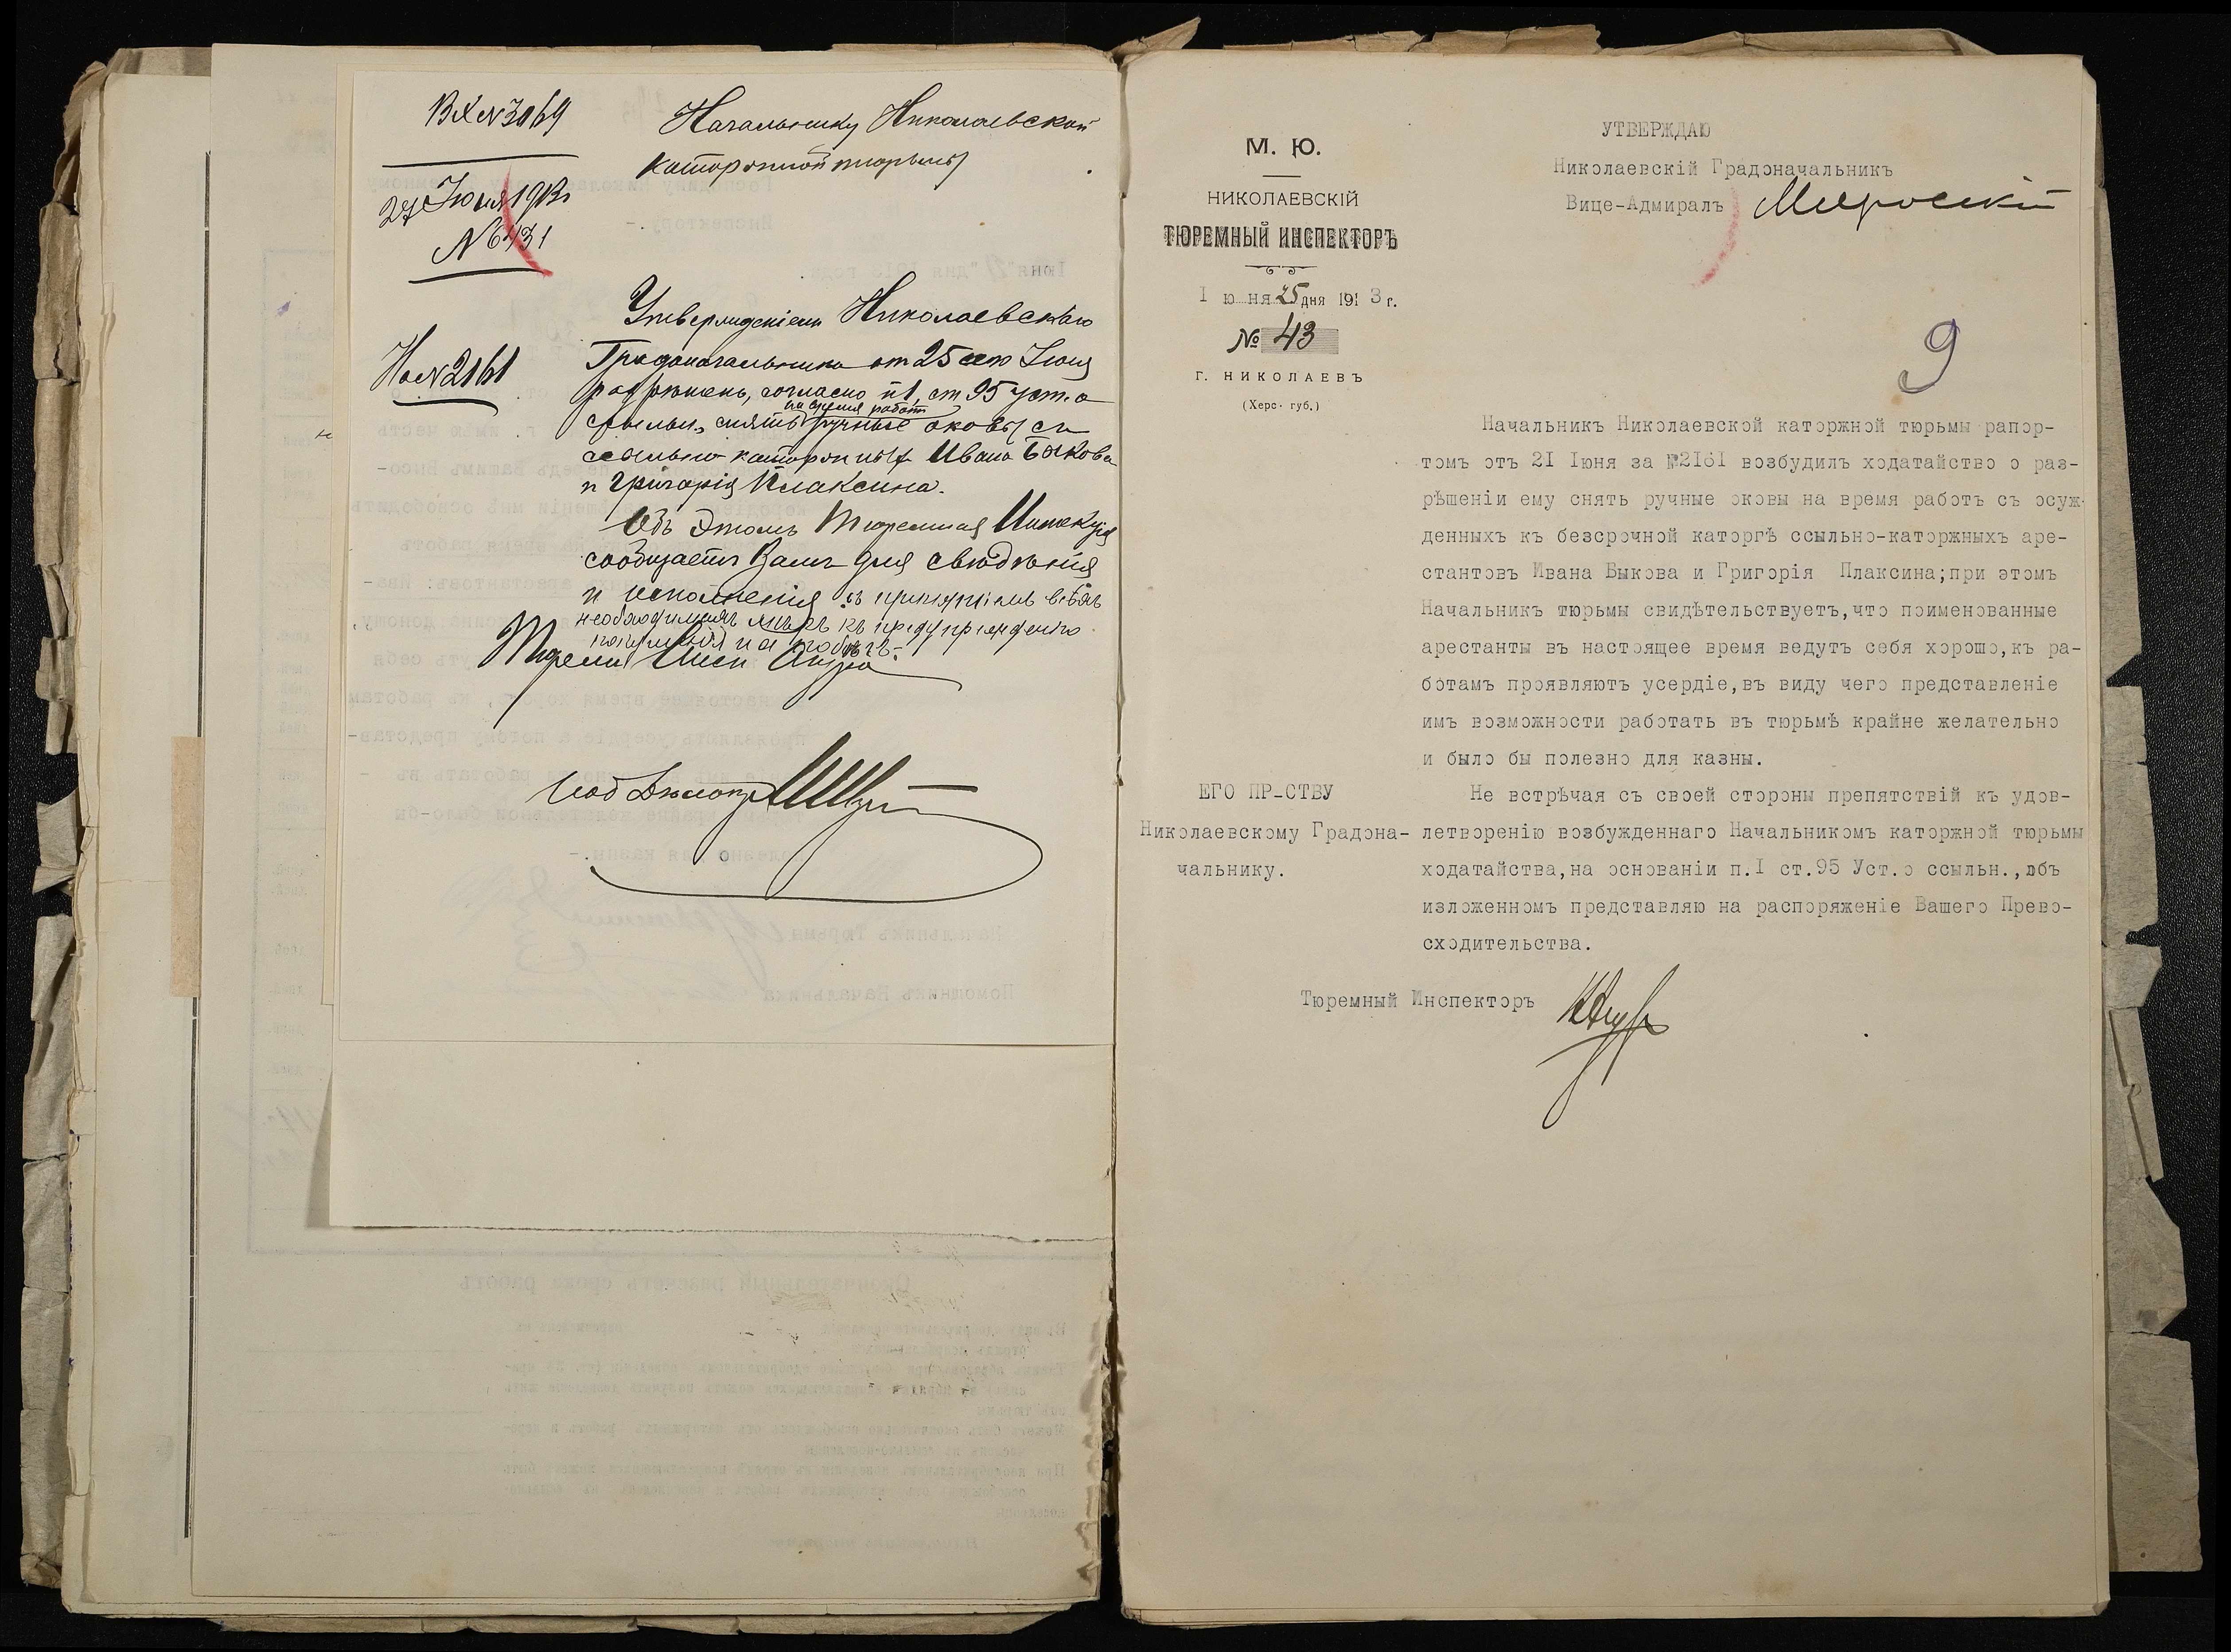 Вх №3069
27 Іюня 1913 г
№6431
На №2161
Начальнику Николаевской
каторжной тюрьмы
Утвержденіемъ Николаевскаго
Градоначальника от 25 сего Іюня
разрѣшено, согласно п 1, ст 95 уст. о
на время работ
ссыльн, снять ручные оковы съ
ссыльно каторжных Ивана Быкова
и Григорія Плаксина.
Объ этомъ Тюремная Инспекція
сообщаетъ Вамъ для свѣдѣнія
и исполненія съ принятіемъ всѣхъ
необходимыхъ мѣръ къ предупрежденію
покушенія на побѣгъ.
Тюремн Инсп
М. Ю.
НИКОЛАЕВСКІЙ
ТЮРЕМНЫЙ ИНСПЕКТОРЪ
Іюня 25 дня 1913 г.
№ 43
г. НИКОЛАЕВЪ
(Херс. губ.)
УТВЕРЖДАЮ
Николаевскій Градоначальникъ
Вице-Адмиралъ
9
Начальникъ Николаевской каторжной тюрьмы рапор-
томъ отъ 21 Іюня за №2161 возбудилъ ходатайство о раз-
рѣшеніи ему снять ручные оковы на время работъ съ осуж-
денныхъ къ безсрочной каторгѣ ссыльно-каторжныхъ аре-
стантовъ Ивана Быкова и Григорія Плаксина;при этомъ
Начальникъ тюрьмы свидѣтельствуетъ,что поименованные
арестанты въ настоящее время ведутъ себя хорошо,къ ра-
ботамъ проявляютъ усердіе,въ виду чего представленіе
имъ возможности работать въ тюрьмѣ крайне желательно
и было бы полезно для казны.
ЕГО ПР-СТВУ
Николаевскому Градона-
чальнику.
Не встрѣчая съ своей стороны препятствій къ удов-
летворенію возбужденнаго Начальникомъ каторжной тюрьмы
ходатайства,на основаніи п.I ст.95 Уст.о ссыльн.,объ
изложенномъ представляю на распоряженіе Вашего Прево-
сходительства.
Тюремный Инспекторъ